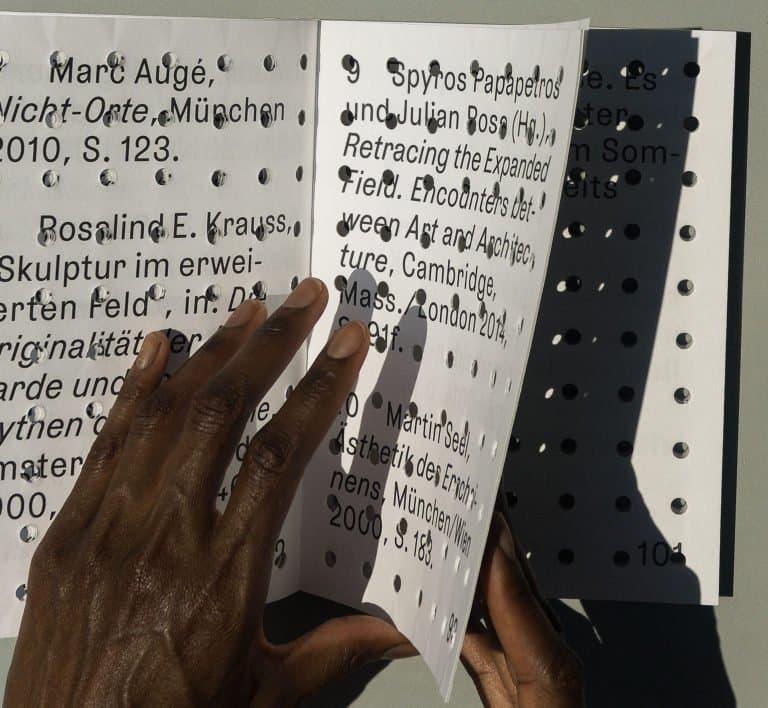 Marc Augé,
Nicht-Orte, München
2010, S. 123.
Rosalind E. Krauss,
Skulptur im erwei-
erten Feld", in: Di
riginalität der
arde und
ythen d
mster
000,
9 Spyros Papapetros
und Julian Rose (Hg.),
Retracing the Expanded
Field. Encounters bet-
ween Art and Architec-
ture, Cambridge,
Mass./London 2014,
S. 91f.
10 Martin Seel,
Ästhetik des Erschei-
nens, München/Wien
2000, S. 183.
e. Es
ter
m Som-
eits
101